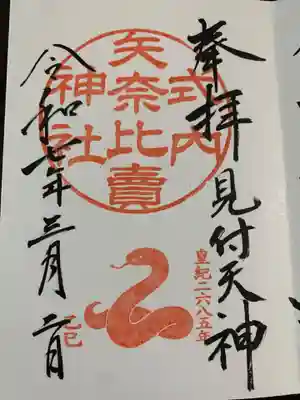 奉拝 見付天神
皇紀二六八五年
式内
矢奈比賣
神社
乙巳
令和七年三月二日